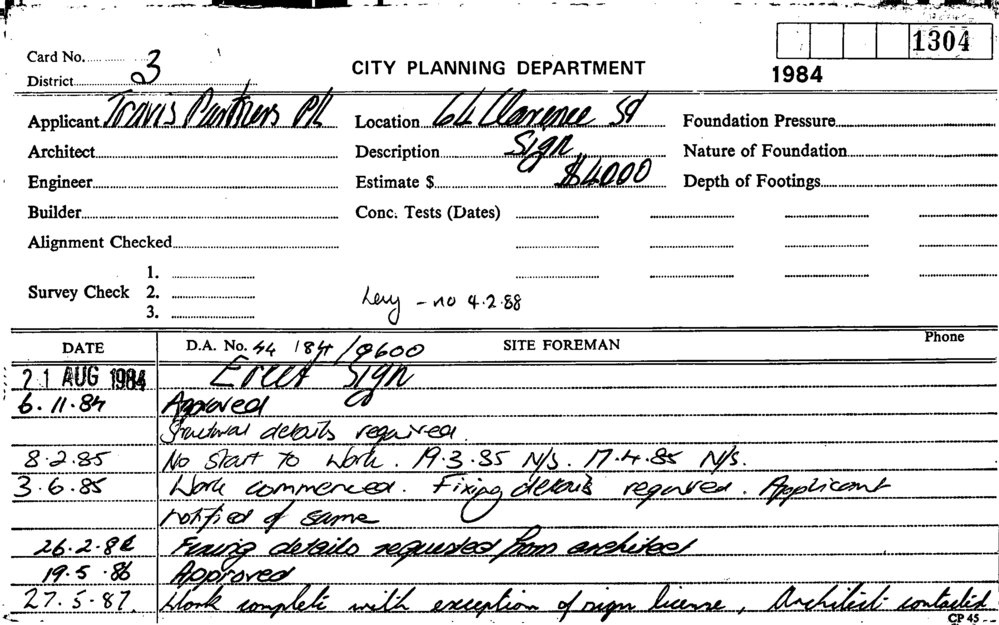 1304
Card No.
3
CITY PLANNING DEPARTMENT
1984
District
Applicant Travis Partners P/L
Location 64 Clarence St
Foundation Pressure
Architect
Description Sign
Nature of Foundation
Engineer
Estimate $ $4000
Depth of Footings
Builder
Conc. Tests (Dates)
Alignment Checked
1.
Survey Check 2.
3.
Levy - no 4.2.88
DATE
D.A. No. 44 184/0600
SITE FOREMAN
Phone
21 AUG 1984 Erect Sign
6.11.84 Approved
Structural details required.
8.2.85 No start to work. 19.3.85 N/S. 17.4.85 N/S.
3.6.85 Work commenced. Fixing details required. Applicant
notified of same
26.2.86 Fixing details requested from architect
19.5.86 Approved
27.5.87. Work complete with exception of sign license, Architect contacted
CP 45